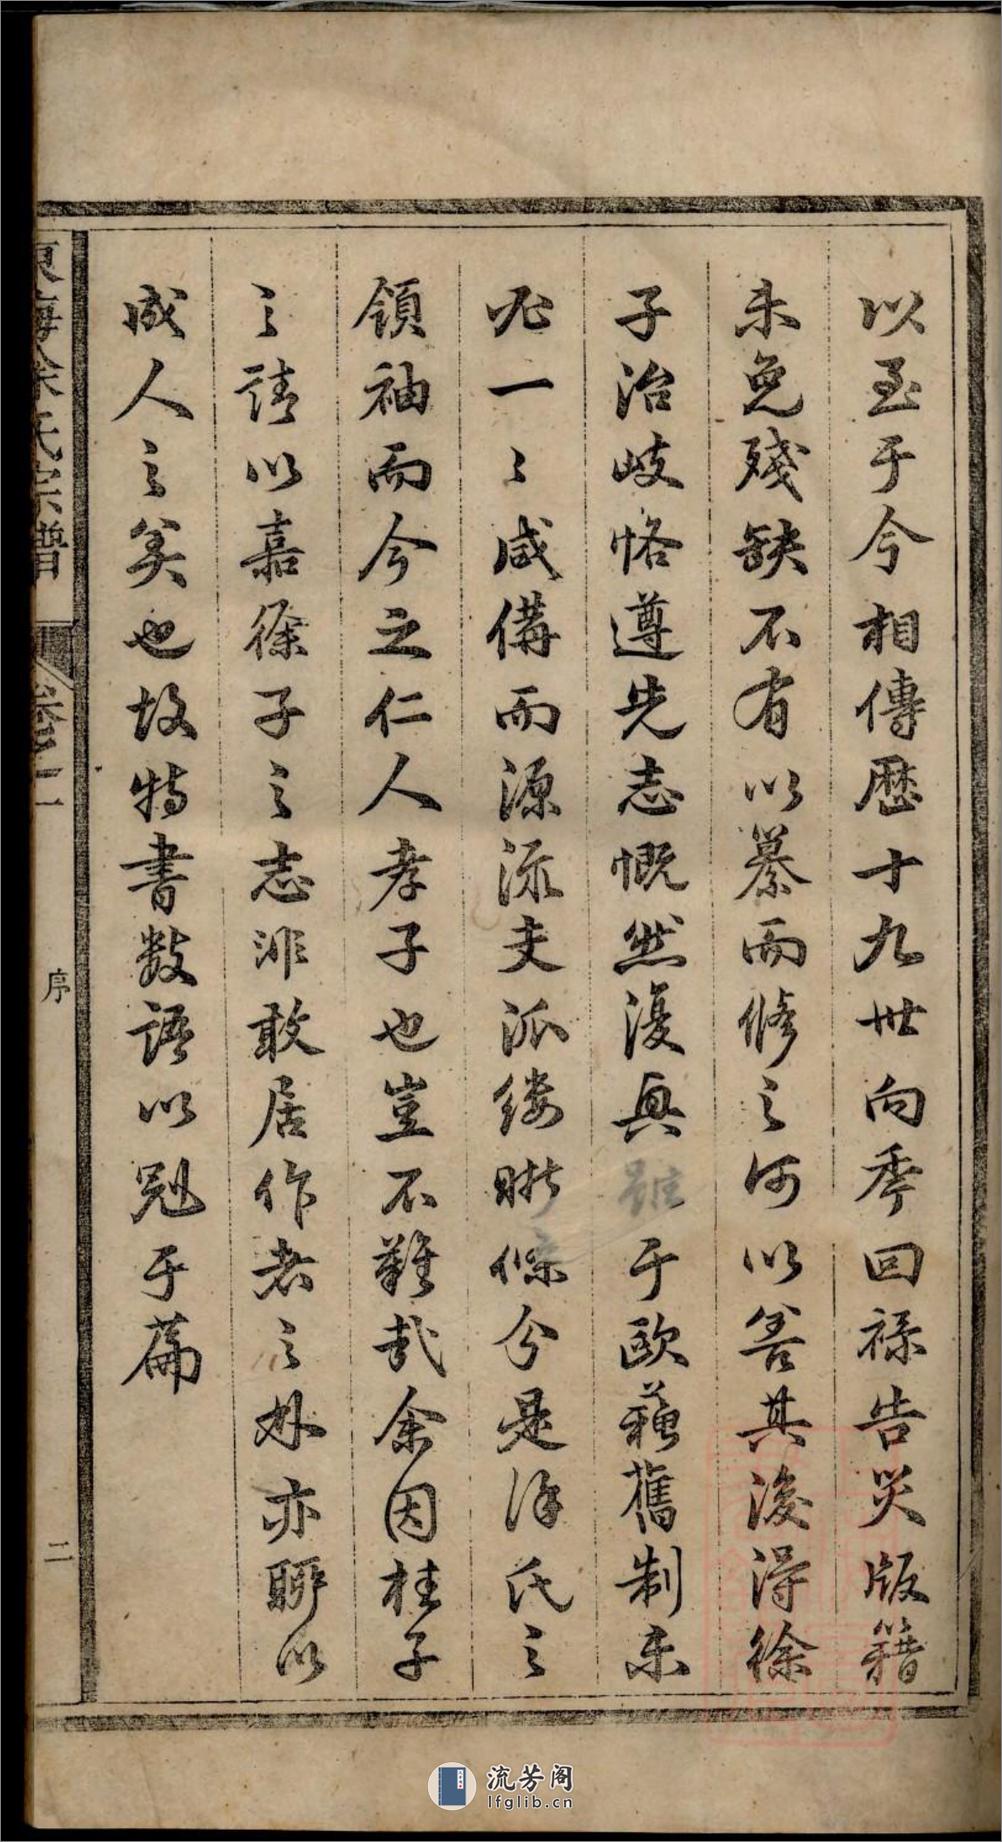 以至于今相傳歷十九世向季回祿告災版籍
未免殘缺不有以纂而修之何以善其後得徐
子治歧恪遵先志慨然復興雖于歐蘓舊制未
必一〻咸備而源源支派縷晰條分是徐氏之
領袖而今之仁人孝子也豈不難哉余因桂子
之請以嘉徐子之志非敢居作者之林亦聊以
成人之美也故特書數語以冠于篇
東海徐氏宗譜
卷之一
序
二
流芳阁
lfglib.cn